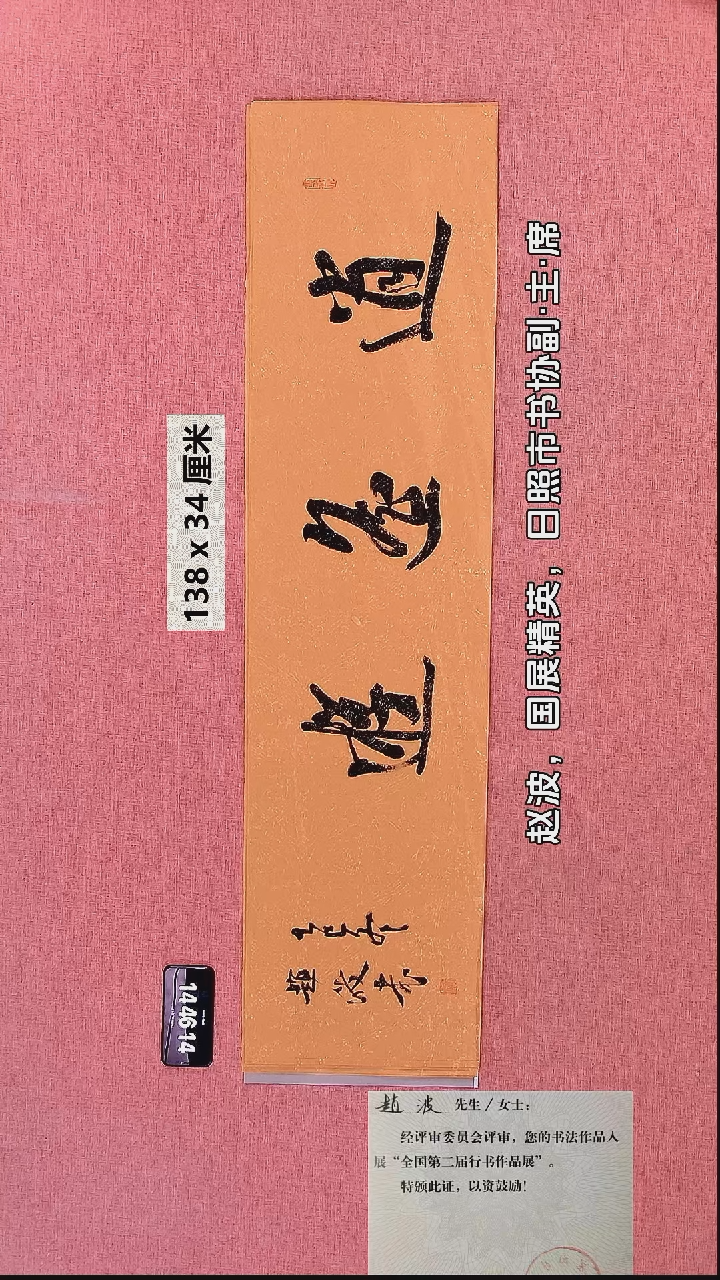 138 x 34 厘米
道
趙波書
赵波，国展精英，日照市书协副·主·席
144614
趙 波 先生/女士：
经评审委员会评审，您的书法作品入
展“全国第二届行书作品展”。
特颁此证，以资鼓励！